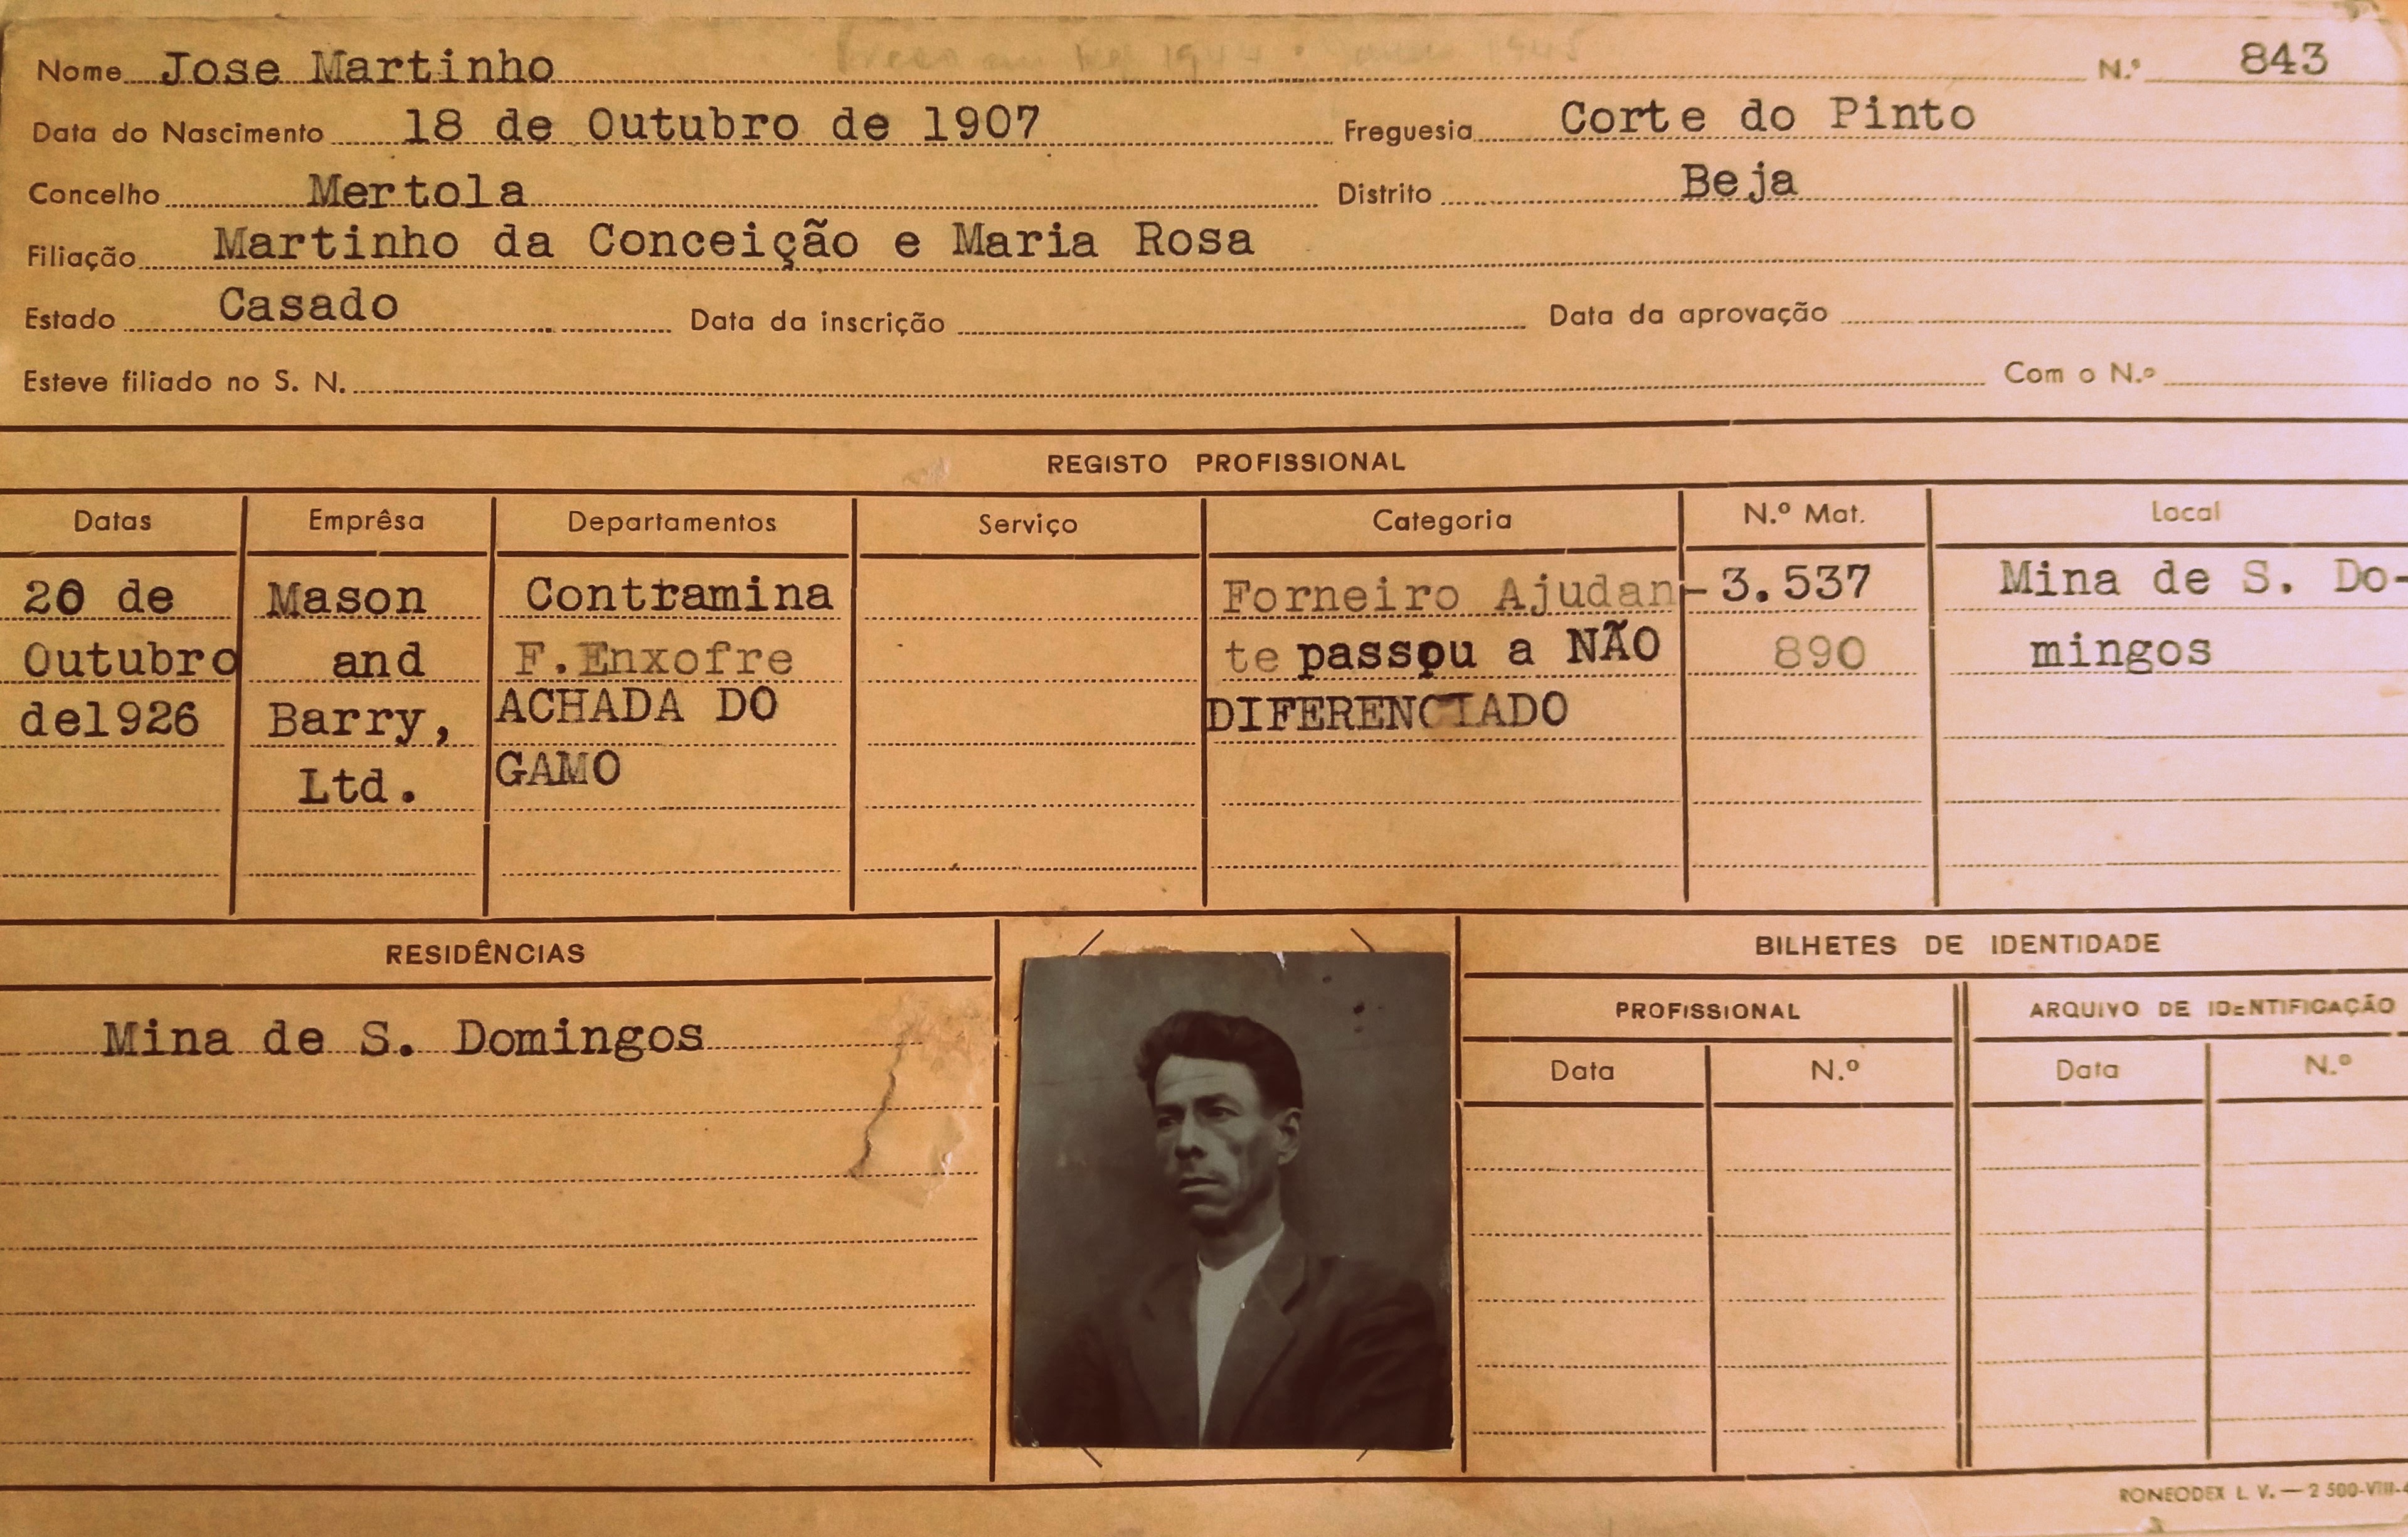 Nome Jose Martinho N.º 843
Data do Nascimento 18 de Outubro de 1907 Freguesia Corte do Pinto
Concelho Mertola Distrito Beja
Filiação Martinho da Conceição e Maria Rosa
Estado Casado Data da inscrição Data da aprovação
Esteve filiado no S. N. Com o N.º
REGISTO PROFISSIONAL
Datas Emprêsa Departamentos Serviço Categoria N.º Mat. Local
20 de Mason Contramina Forneiro Ajudan- 3.537 Mina de S. Do-
Outubro and F.Enxofre te passou a NÃO 890 mingos
de1926 Barry, ACHADA DO DIFERENCIADO
Ltd. GAMO
RESIDÊNCIAS BILHETES DE IDENTIDADE
PROFISSIONAL ARQUIVO DE IDENTIFICAÇÃO
Mina de S. Domingos
Data N.º Data N.º
RONEODEX L. V. — 2 500-VIII-4